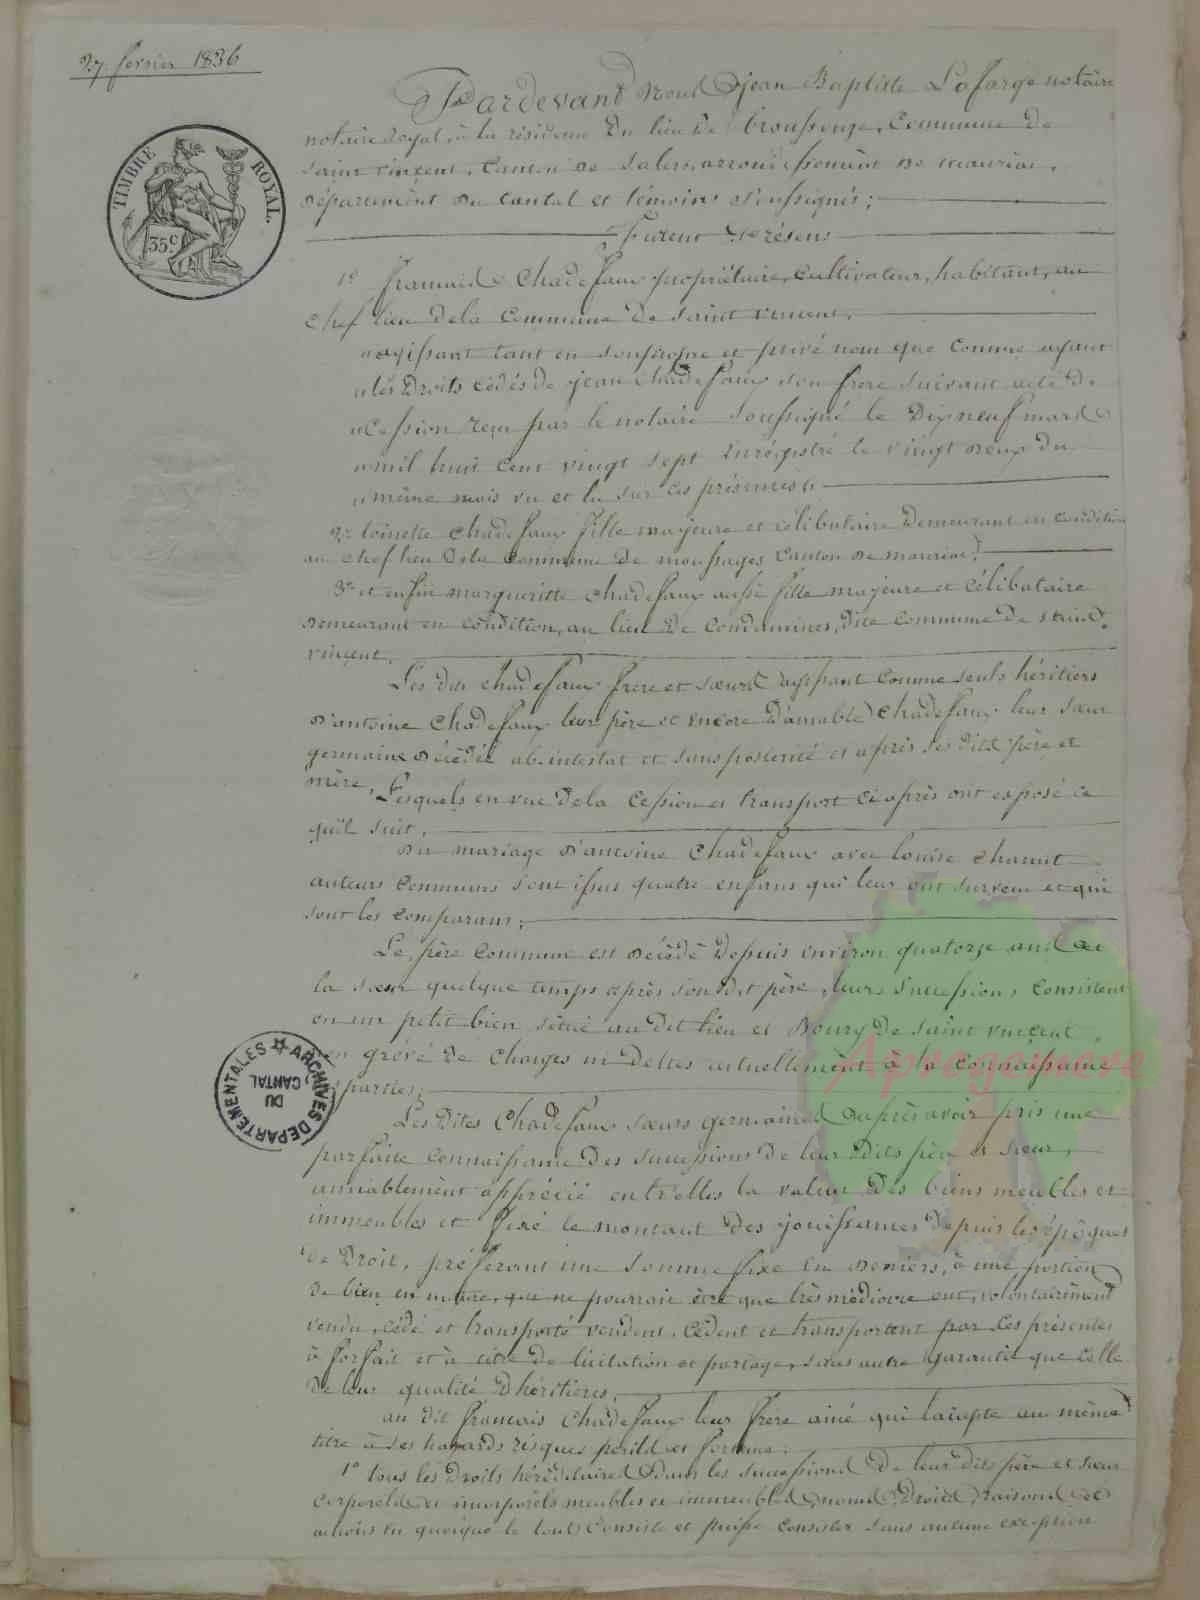 27 fevrier 1836
TIMBRE ROYAL.
35c
Pardevant Nous Jean Baptiste Lafarge notaire
notaire royal, à la résidence du lieu de Broussouze, Commune de
saint vincent, Canton de Salers, arrondissement de mauriac,
département du Cantal et témoins soussignés;
Furent Présens
1º François Chadefaux propriétaire, Cultivateur, habitant, au
chef lieu de la Commune de saint vincent,
agissant tant en son propre et privé nom que comme ayant
les Droits cédés de jean Chadefaux son frère suivant acte de
Cession reçu par le notaire soussigné le Dix neuf mars
mil huit cent vingt sept Enrégistré le vingt deux du
même mois vu et lu sur ces présentes;
2º toinette Chadefaux fille majeure et célibataire Demeurant en condition
au chef lieu de la Commune de moussages Canton de mauriac;
3º et enfin margueritte Chadefaux aussi fille majeure et célibataire
demeurant en condition, au lieu de Condamines, dite commune de saint
vincent,
Les dits Chadefaux frère et sœurs agissant comme seuls héritiers
d'antoine Chadefaux leur père et encore D'amable Chadefaux leur sœur
germaine décédée ab-intestat et sans postérité et après ses dits père et
mère,
Lesquels en vue de la Cession et transport ci après ont exposé ce
qu'il suit.
Du mariage d'antoine Chadefaux avec louise
auteurs Communs sont issus quatre enfans qui leur ont survecu et qui
sont les comparans;
Le père commun est décédé Depuis environ quatorze ans et
la sœur quelque temps après son dit père, leurs successions Consistent
en un petit bien situé au dit lieu et Bourg de saint vincent,
grévé de charges ni dettes actuellement à la Connaissance
parties;
Les Dites Chadefaux sœurs germaines après avoir pris une
parfaite connaissance des successions de leur dits père et sœur,
amiablement apprécié entr'elles la valeur des biens meubles et
immeubles et fixé le montant des jouissances depuis les époques
de Droit, préférant une somme fixe en deniers, à une portion
de bien en nature, qui ne pourrait être que très médiocre ont, volontairement
vendu, cédé et transporté vendent, cèdent et transportent par ces présentes
à forfait et à titre de licitation et partage, sans autre garantie que celle
de leur qualité d'héritières,
au dit françois Chadefaux leur frère ainé qui l'accepte au même
titre à ses hazards risques périls et fortune;
1º tous les Droits héréditaires dans les successions de leur dits père et sœur
corporels et incorporels meubles et immeubles, noms, Droits, raisons et
actions en quoique le tout Consiste et puisse consister sans aucune exception
ARCHIVES DEPARTEMENTALES
DU
CANTAL
Aprogemere